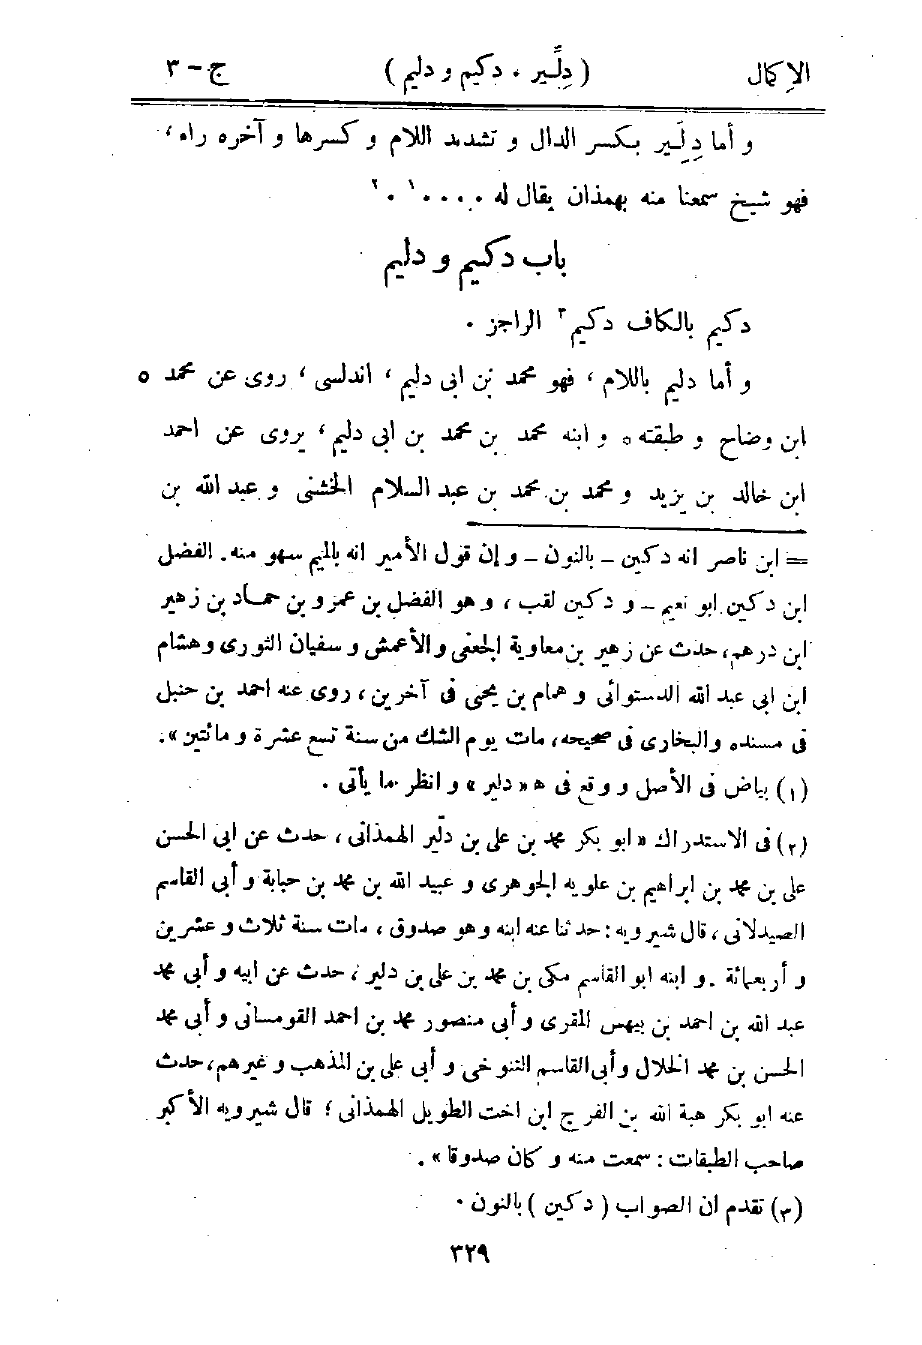 الإكمال ( دِلِّير . دكيم و دليم ) ج - ٣
و أما دِلِّير بكسر الدال و تشديد اللام و كسرها و آخره راء ،
فهو شيخ سمعنا منه بهمذان يقال له . . . . ١ . ٢
باب دكيم و دليم
دكيم بالكاف دكيم ٣ الراجز .
و أما دليم باللام ، فهو محمد بن ابى دليم ، اندلسى ، روى عن محمد ٥
ابن وضاح و طبقته ٥ و ابنه محمد بن محمد بن ابى دليم ، يروى عن احمد
ابن خالد بن يزيد و محمد بن محمد بن عبد السلام الخشنى و عبد الله بن
= ابن ناصر انه دكين - بالنون - و إن قول الأمير انه بالميم سهو منه . الفضل
ابن دكين ابو نعيم - و دكين لقب ، و هو الفضل بن عمرو بن حماد بن زهير
ابن درهم ، حدث عن زهير بن معاوية الجعفى و الأعمش و سفيان الثورى و هشام
ابن ابى عبد الله الدستوائى و همام بن يحيى فى آخرين ، روى عنه احمد بن حنبل
فى مسنده والبخارى فى صحيحه ، مات يوم الشك من سنة تسع عشرة و مائتين » .
(١) بياض فى الأصل و وقع فى ه « دلير » و انظر ما يأتى .
(٢) فى الاستدراك « ابو بكر محمد بن على بن دلّير الهمذانى ، حدث عن ابى الحسن
على بن محمد بن ابراهيم بن علويه الجوهرى و عبيد الله بن محمد بن حبابة و أبى القاسم
الصيدلانى ، قال شيرويه : حدثنا عنه ابنه و هو صدوق ، مات سنة ثلاث و عشرين
و أربعمائة . و ابنه ابو القاسم مكى بن محمد بن على بن دلير ، حدث عن ابيه و أبى محمد
عبد الله بن احمد بن بيهس المقرى و أبى منصور محمد بن احمد القومسانى و أبى محمد
الحسن بن محمد الخلال و أبى القاسم التنوخى و أبى على بن المذهب و غيرهم ، حدث
عنه ابو بكر هبة الله بن الفرج ابن اخت الطويل الهمذانى ؛ قال شيرويه الأكبر
صاحب الطبقات : سمعت منه و كان صدوقا » .
(٣) تقدم ان الصواب ( دكين ) بالنون .
٣٢٩